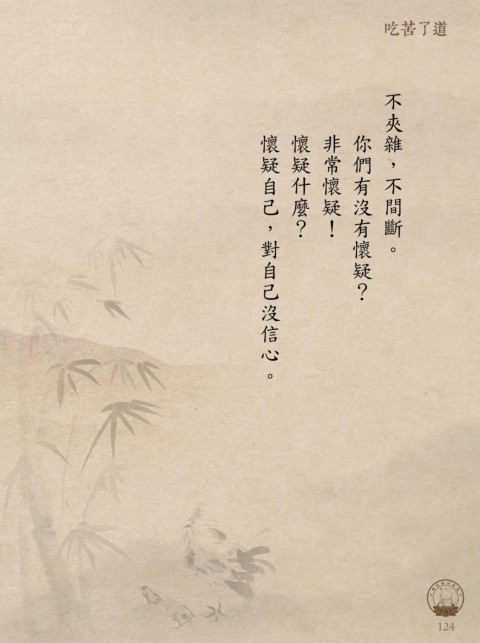 吃苦了道
不夾雜，不間斷。
你們有沒有懷疑？
非常懷疑！
懷疑什麼？
懷疑自己，對自己沒信心。
124